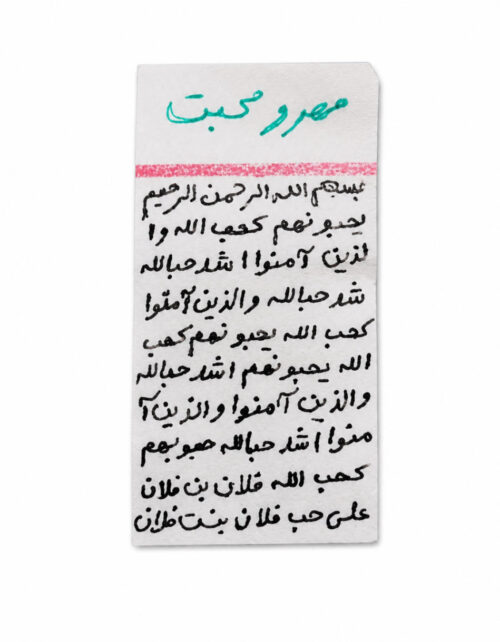 مهر و محبت
بسم الله الرحمن الرحیم
یحبونهم کحب الله وا
لذین آمنوا اشد حبالله
شد حبالله والذین آمنوا
کحب الله یحبونهم کحب
الله یحبونهم اشد حبالله
والذین آمنوا والذین آ
منوا اشد حبالله حبوبهم
کحب الله فلان بن فلان
علی حب فلان بنت فلان